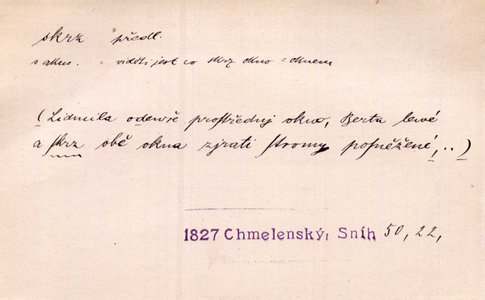 skrz předl.
s akus. viděti jest co skrz okno = oknem
(Lidmila odewře prostřednj okno, Berta lewé
a skrz obě okna zjrati stromy posněžené,..)
1827 Chmelenský, Sníh 50, 22,